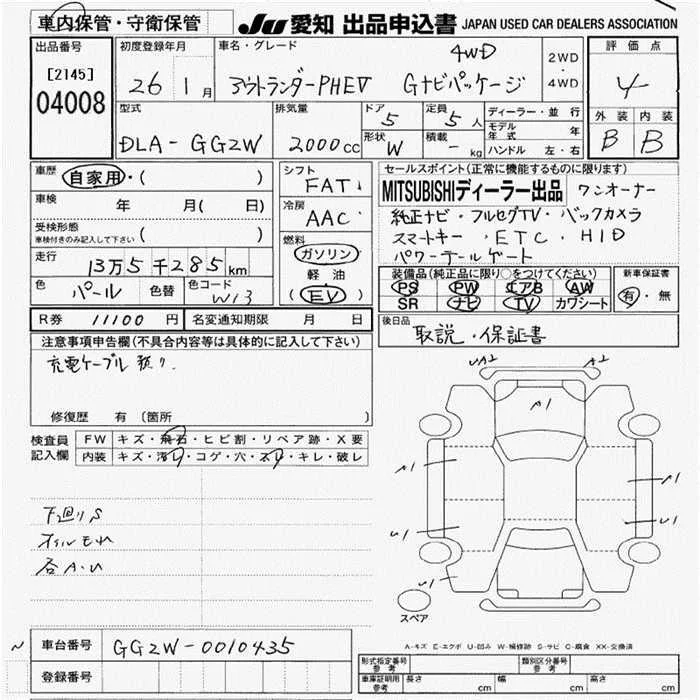 車内保管・守衛保管
JU 愛知 出品申込書 JAPAN USED CAR DEALERS ASSOCIATION
出品番号
[2145]
04008
初度登録年月
26 1 月
車名・グレード
4WD
アウトランダーPHEV Gナビパッケージ
2WD
・
4WD
評価点
4
外装 内装
B B
型式
DLA-GG2W
排気量
2000 cc
ドア
5
形状
W
定員
5 人
積載
- kg
ディーラー・並行
モデル年式 年
ハンドル 左・右
車歴
自家用・( )
車検 年 月( 日)
受検形態
車検付きのみ記入して下さい ( )
走行
13万5千285km
色
パール
色替
色コード
W13
シフト
FAT
冷房
AAC
燃料
ガソリン
軽油
(EV)
セールスポイント(正常に機能するものに限ります)
MITSUBISHIディーラー出品 ワンオーナー
純正ナビ・フルセグTV・バックカメラ
スマートキー・ETC・HID
パワーテールゲート
装備品(純正品に限り○をつけてください)
PS PW エアB AW
SR ナビ TV カワシート
新車保証書
有・無
R券 11100 円 名変通知期限 月 日
後日品
取説・保証書
注意事項申告欄(不具合内容等は具体的に記入して下さい)
充電ケーブル 預り
修復歴 有 (箇所 )
検査員記入欄
FW キズ・飛石・ヒビ割・リペア跡・X要
内装 キズ・汚レ・コゲ・穴・スレ・キレ・破レ
下廻りS
オイルもれ
各A・U
UA2 A2
A1
A1
A1
U1
U1
U1
スペア
A-キズ E-エクボ U-凹み W-補修跡 S-サビ C-腐食 XX-交換済
車台番号 GG2W-0010435
登録番号
型式指定番号参考
類別区分番号参考
車庫証明用参考 長さ cm 幅 cm 高さ cm